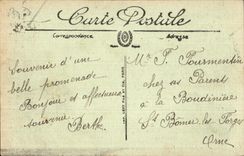 Carte Postale
Correspondance
Adresse
Souvenir d'une
belle promenade
Bonjour et affectueux
souvenir
Berthe
Mr F. Tourmentin
chez ses Parents
à la Boudinière
St Bômer les Forges
Orne